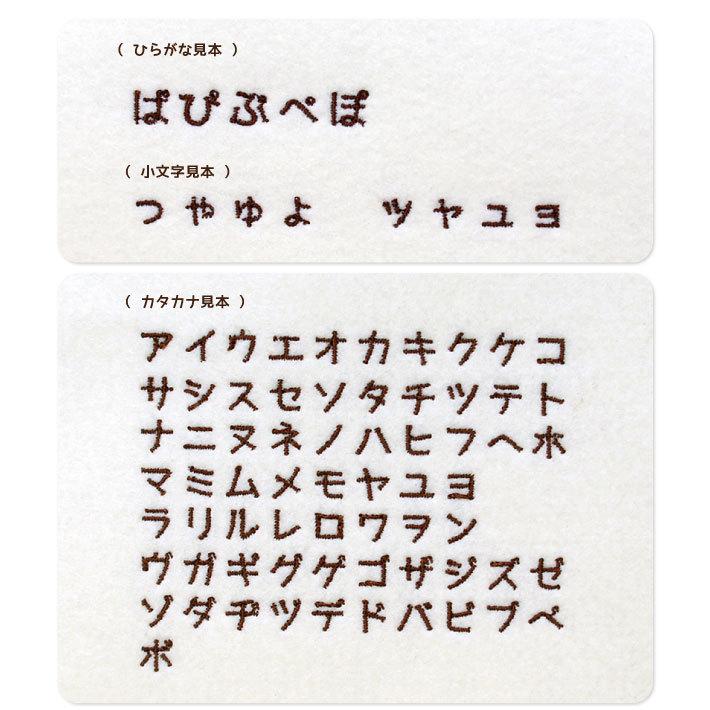 ( ひらがな見本 )
ぱぴぷぺぽ
( 小文字見本 )
っゃゅょ ッャュョ
( カタカナ見本 )
アイウエオカキクケコ
サシスセソタチツテト
ナニヌネノハヒフヘホ
マミムメモヤユヨ
ラリルレロワヲン
ヴガギグゲゴザジズゼ
ゾダヂヅデドバビブベ
ボ